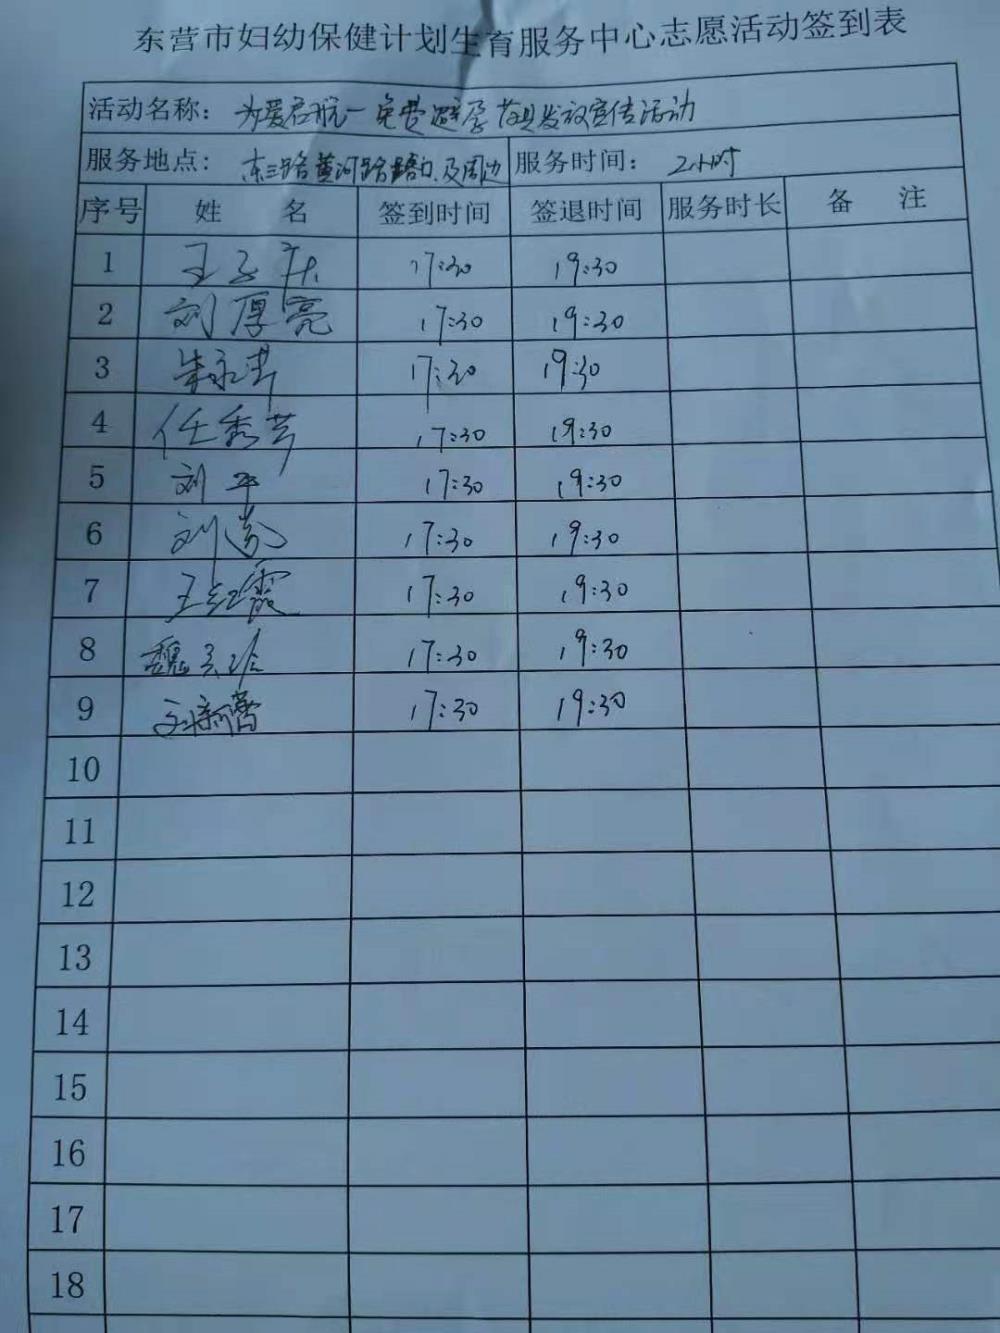 东营市妇幼保健计划生育服务中心志愿活动签到表
活动名称: 为爱启航—免费避孕药具发放宣传活动
服务地点: 东三路黄河路路口及周边 服务时间: 2小时
序号 姓 名 签到时间 签退时间 服务时长 备 注
1 王 17:30 19:30
2 刘厚亮 17:30 19:30
3 朱永 17:30 19:30
4 任秀芳 17:30 19:30
5 刘平 17:30 19:30
6 刘 17:30 19:30
7 王红霞 17:30 19:30
8 魏 17:30 19:30
9 刘新蕾 17:30 19:30
10
11
12
13
14
15
16
17
18